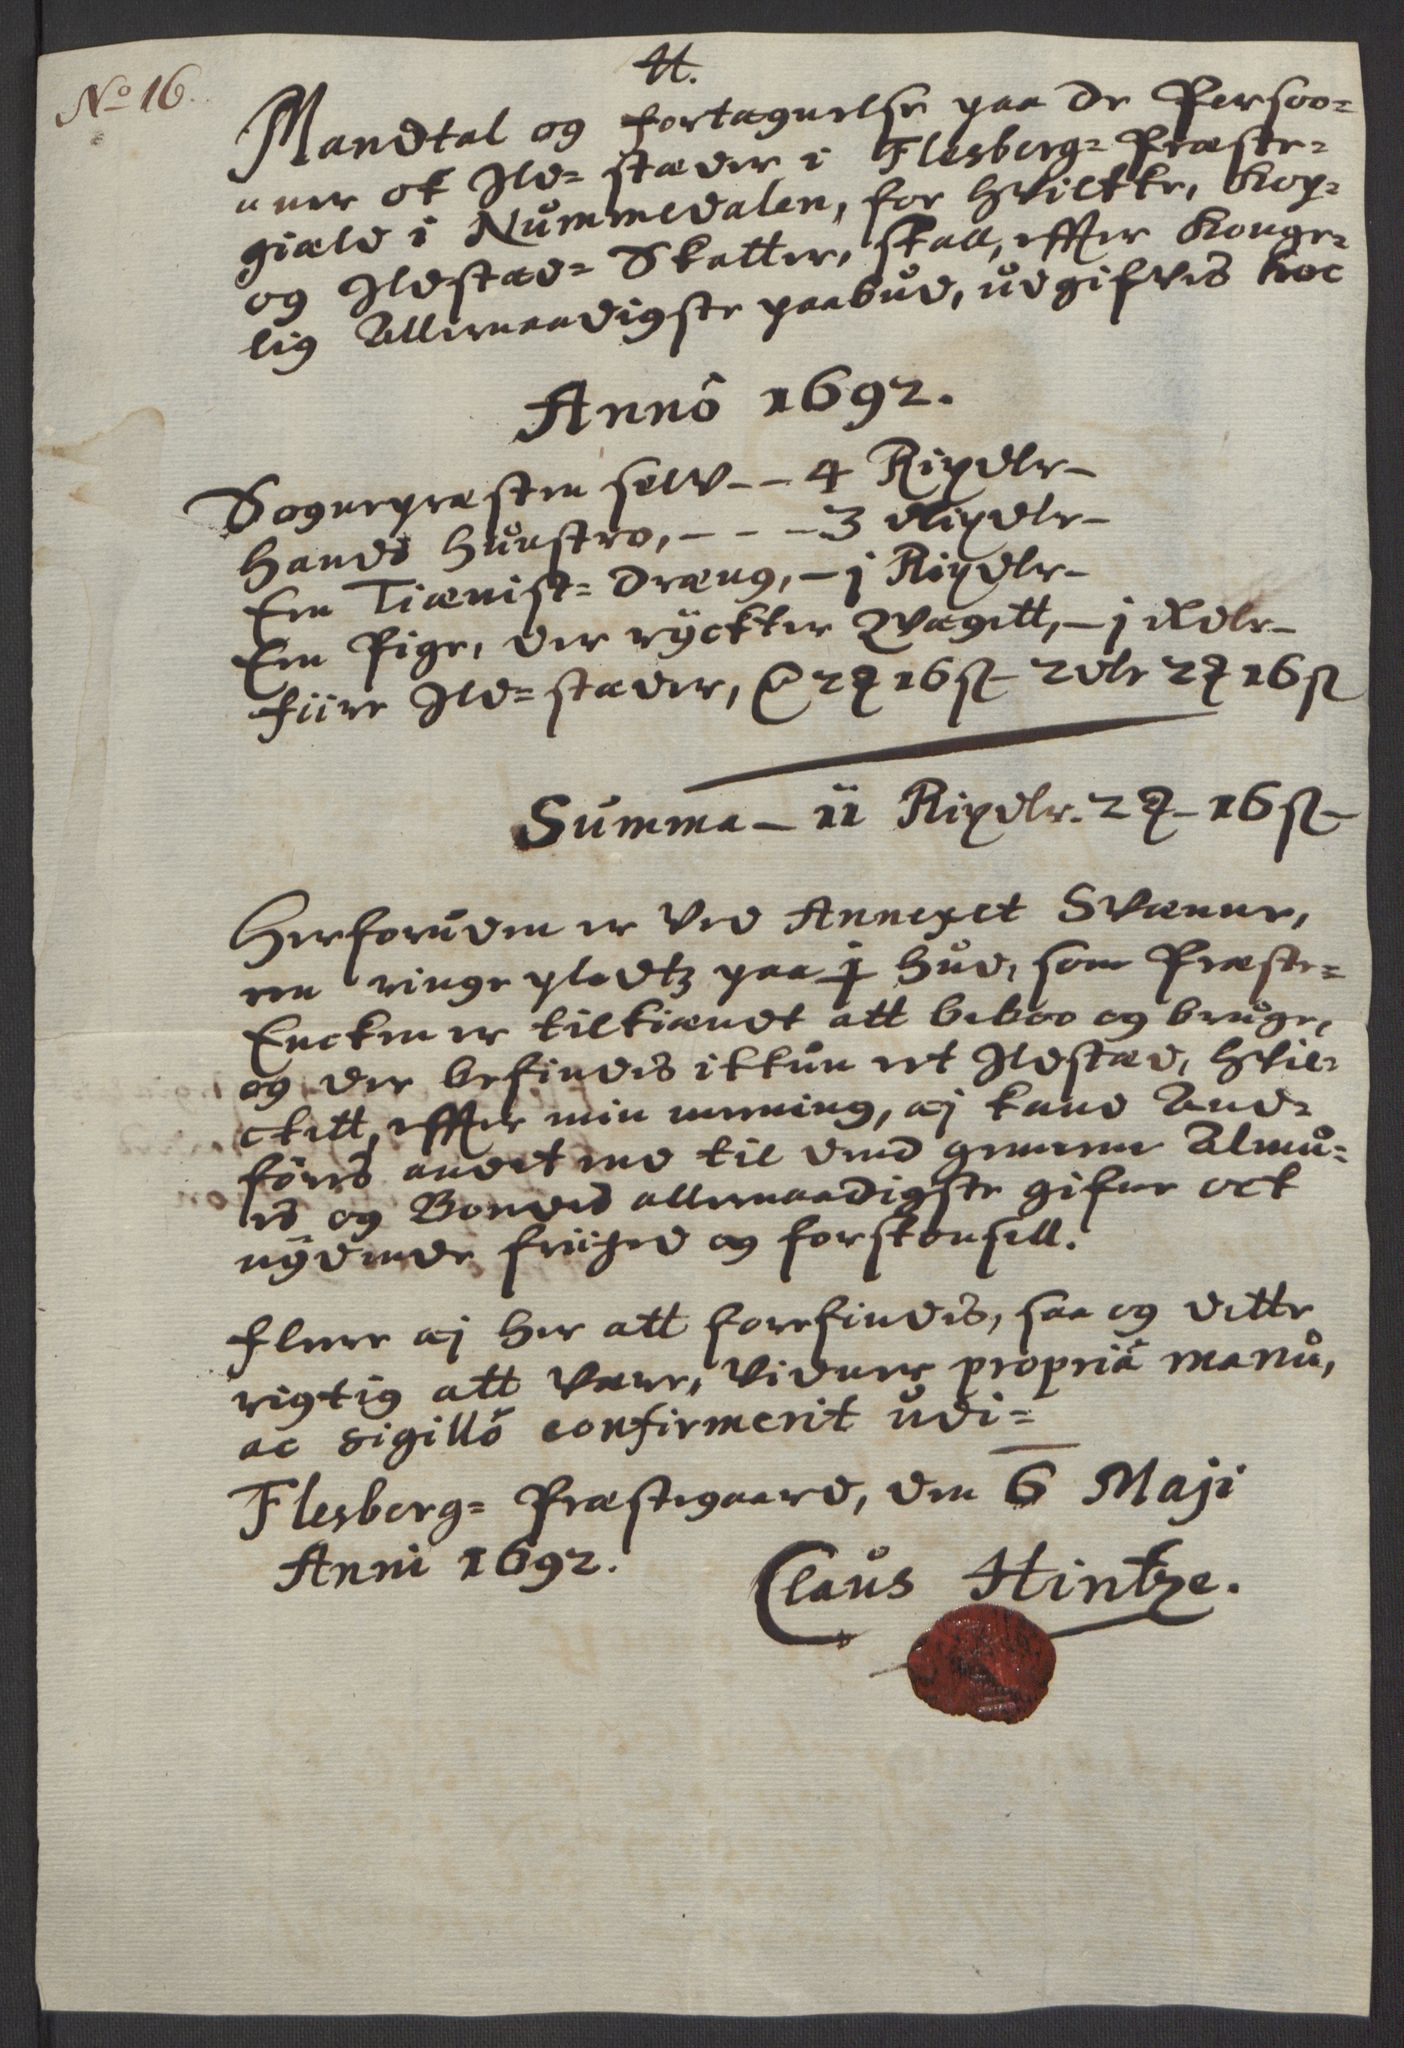 No 16.
H.
Mandtal og fortægnelse paa de Persoo=
nner ok Ild= stæder i Flesberg= Præste=
giæld i Nummedalen, for hvilcke, Kop=
og Ildstæd= Skatter, skall, effter Konge=
lig Allernaadigste paabud, udgifves hoc
Anno 1692.
Sognepræsten selv - - 4 Rixdlr -
Hands Huustro, - - - 3 Rixdlr -
Een Tiænist= dræng, - j Rixdlr -
Een Pige, der rÿckter Qvægett, - j Rdlr -
fiire Ild= stæder, 2 16 ß - 2 dlr 2 16 ß
Summa - ii Rixdlr. 2 - 16 ß -
Herforuden er ved Annexet Svænne,
een ringe pladtz paa j hud, som Præste=
Encken er tilkiændt att beboo og bruge,
og der befindes ikkun eet Ildstæd, hvil=
ckett, effter min meening, æj kand And=
föres andet end til dend gemene Almu=
es og Bondes allernaadigste gifne ock
nÿdende friihed og forskonsell.
fleere æj her att forefindes, saa og dette
rigtig att være, vidner propriâ manu,
ac sigillo confirmerit udi=
Flesberg= Præstegaard, den 6 Maji
Anni 1692.
Claus Hintze.